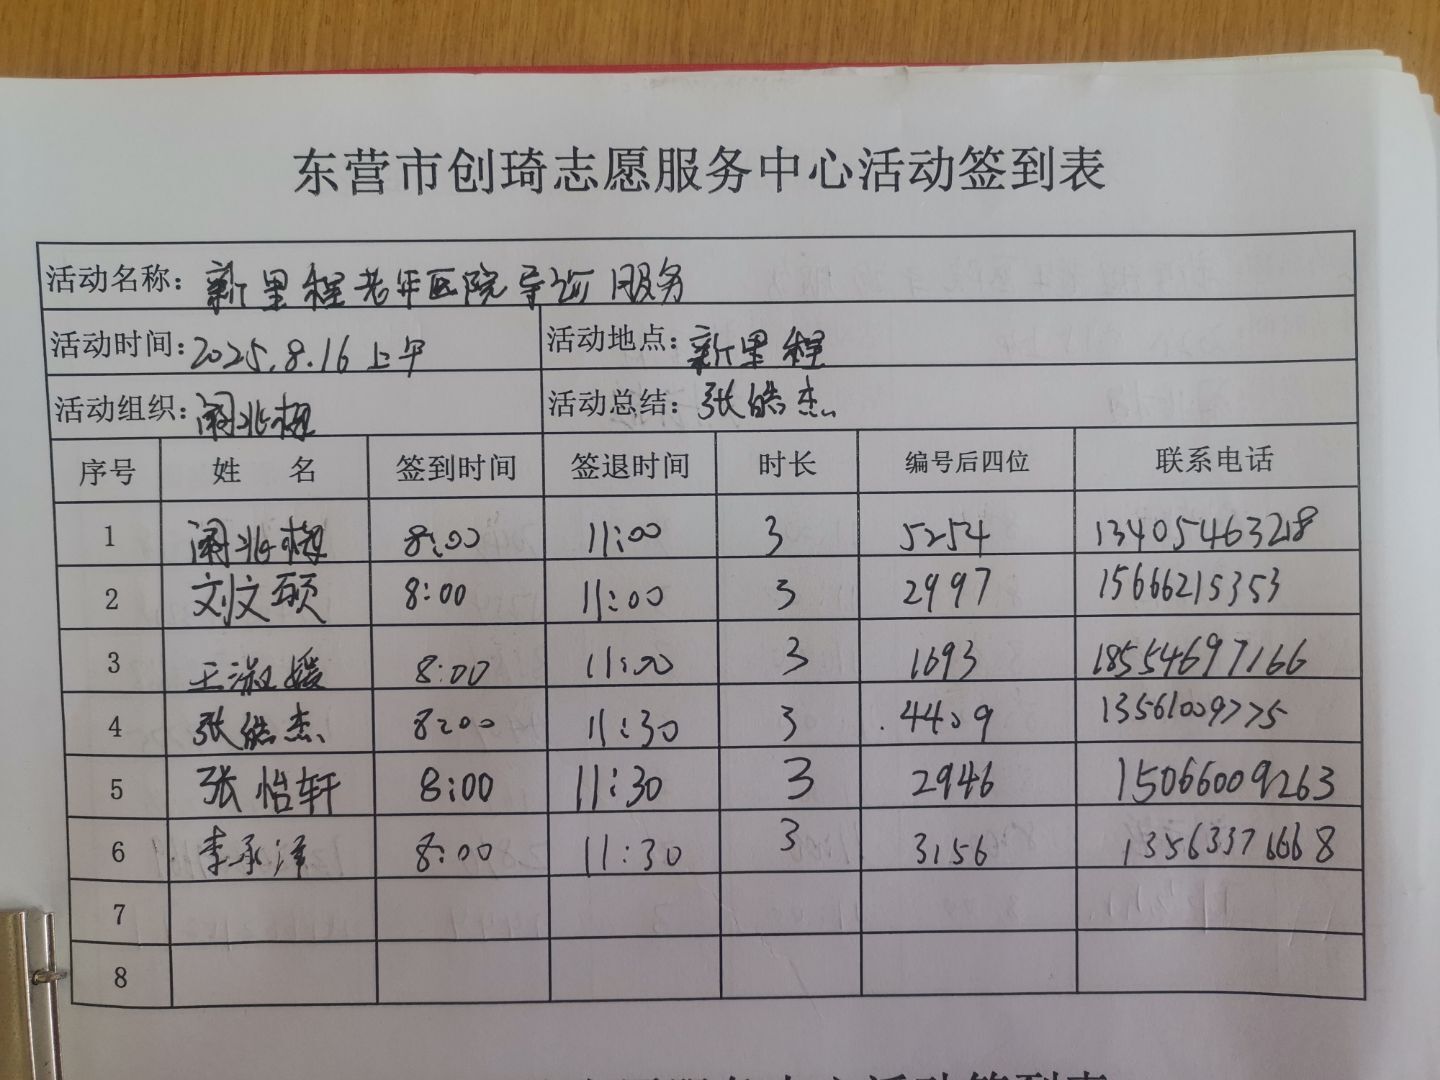 东营市创琦志愿服务中心活动签到表
活动名称: 新里程老年医院导诊服务
活动时间: 2025.8.16上午 活动地点: 新里程
活动组织: 活动总结: 张皓杰
序号 姓 名 签到时间 签退时间 时长 编号后四位 联系电话
1 8:00 11:00 3 5254 13405463218
2 刘文硕 8:00 11:00 3 2997 15666215353
3 王淑媛 8:00 11:00 3 1693 18554697166
4 张皓杰 8:00 11:30 3 4409 13561009775
5 张怡轩 8:00 11:30 3 2946 15066009263
6 李承泽 8:00 11:30 3 3156 13563371668
7
8